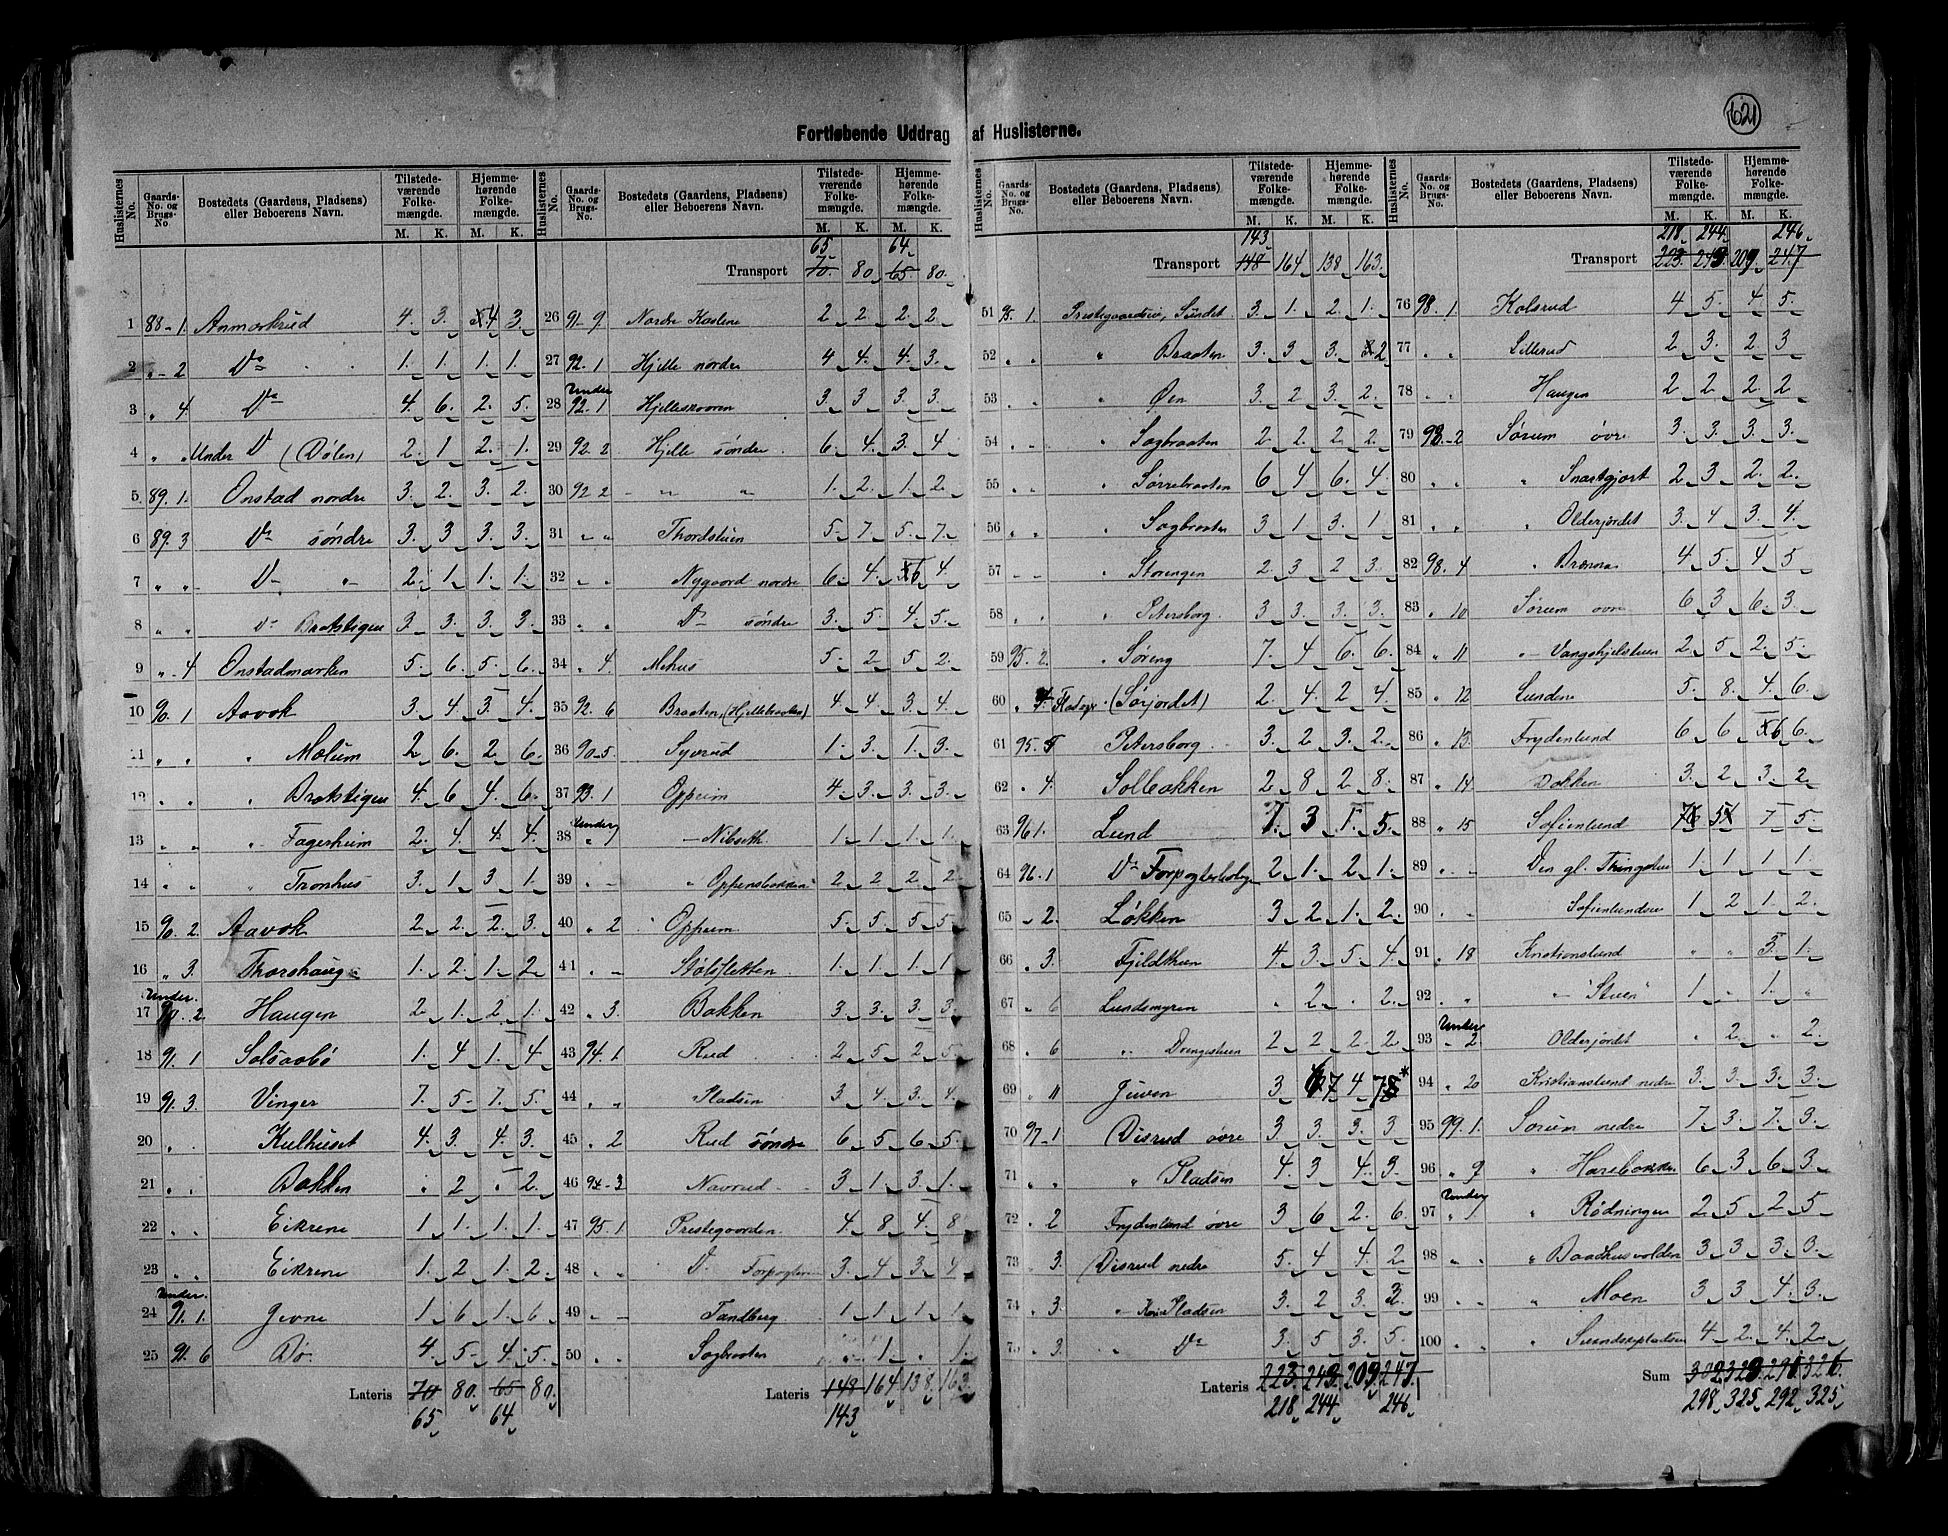 621
Fortløbende Uddrag af Huslisterne.
Huslisternes No. Gaards-No. og Brugs-No Bostedets (Gaardens, Pladsens) eller Beboerens Navn. Tilstedeværende Folkemængde. M. K. Hjemmehørende Folkemængde. M. K.
1 88-1. Anmarkrud 4. 3. 4 3.
2 „-2 Do 1. 1. 1. 1.
3 „ 4. Do 4. 6. 2. 5.
4 „ „ Under Do (Dølen) 2. 1 2. 1.
5 89.1. Onstad nordre 3. 2. 3. 2.
6 89.3 Do søndre 3. 3 3. 3.
7 „ „ Do „ 2. 1. 1. 1.
8 „ „ Do Bratstigen 3. 3. 3. 3.
9 „-4 Onstadmarken 5. 6. 5. 6.
10 90.1 Aavok 3. 4. 3. 4.
11 „ „ „ Molum 2 6. 2 6.
12 „ „ „ Bratstigen 4. 6 4. 6.
13 „ „ „ Fagerheim 2. 4. 4. 4.
14 „ „ „ Tronhus 3. 1. 3. 1.
15 90.2. Aavok 2. 2. 2. 3.
16 „ 3. Thorshaug 1. 2. 1. 2
17 Under 90.2. Haugen 2. 1. 2. 1.
18 91.1 Solsaabø 1. 4 1. 4
19 91.3. Vinger 7. 5. 7. 5.
20 „ . Kulhuset 4. 3. 4. 3.
21 „ . Bakken . 2 . 2.
22 „ „ Eikrene 1. 1. 1. 1.
23 „ „ Eikrene 1. 2 1. 2.
24 Under 91.1. Jevne 1. 6 1. 6
25 91.6 Do. 4. 5. 4. 5.
Lateris 70 80. 65 80.
65 64
65 64
Transport 70. 80. 65 80.
26 91-9 Nordre Kaslene 2 2. 2. 2.
27 92.1 Hjelle nordre 4 4. 4. 3.
28 Under 92.1 3. 3 3. 3.
29 92.2 Hjelle søndre 6. 4. 3. 4
30 92.2 „ „ „ 1. 2. 1. 2.
31 „ „ Thordstuen 5. 7. 5. 7.
32 „ „ Nygaard nordre 6. 4. 6 4.
33 „ „ Do søndre 3. 5 4. 5.
34 „ 4. Mehus 5. 2. 5 2.
35 92.6 Braaten (Hjellebraaten) 4. 4. 3. 4
36 90-5. Syverud 1. 3. 1. 3.
37 93.1 Oppeim 4. 3. 3. 3.
38 Under „ 1 1. 1. 1. 1.
39 „ „ „ Oppensbakken 2 2 2. 2.
40 „ 2 Oppeim 5. 5. 5 5.
41 „ Stølsletten 1. 1. 1. 1
42 „ 3. Bakken 3. 3. 3. 3.
43 94.1. Rud 2. 5. 2. 5.
44 „ „ „Pladsen 3. 4. 3. 4.
45 „ 2 Rud søndre 6. 5 6. 5.
46 94-3 Navrud 3. 1. 3. 1.
47 95.1 Prestegaarden 4. 8 4. 8
48 „ „ Do Forpagteren 3. 4 3. 4
49 „ Tandberg 1. 1. 1. 1.
50 „ „ Sagbraaten . 1. . 1.
Lateris 148 164 138. 163.
143
143
Transport 148 164. 138. 163.
51 95.1. Prestegaardseie, Sundet 3. 1. 2. 1.
52 „ „ „ Braaten 3. 3. 3. 2
53 „ „ Øen 3. 2 3. 2.
54 „ „ „ Sagbraaten 2. 2. 2. 2.
55 „ „ „ Sørrebraaten 6. 4 6. 4.
56 „ „ „ Sagbraaten 3. 1. 3. 1.
57 „ „ „ Storengen 2. 3 2 3.
58 „ „ „ Petersborg 3. 3. 3. 3.
59 95.2. „ Søreng 7. 4 6. 6.
60 „ (Sørjordet) 2. 4. 2 4.
61 95.5 Petersborg 3. 2. 3. 2.
62 „ 4. Solbakken 2. 8. 2 8.
63 96.1. Lund 7. 3 7. 5.
64 96.1 Do 2 1. 2 1.
65 „ 2. Løkken 3. 2 1. 2.
66 „ 3. 4. 3. 5. 4.
67 „ 6 Lundsmyren . 2 . 2.
68 „ 6 „ Drengestuen 2. 2 2 2.
69 „ 11 Juven 3 7 4.
70 97-1 Disrud øvre 3. 3. 3. 3
71 „ „ „ Pladsen 4. 3 4. 3.
72 „ 2 Frydenlund øvre 3. 6. 2. 6.
73 „ 3. Disrud nedre 5. 4. 4. 2
74 „ 3. „ Pladsen 3. 2 3. 2.
75 „ 3. „ Do 3. 5 3. 5.
Lateris 223. 243. 209 247.
218 244 246
218 244. 246.
Transport 223. 243 209. 247
76 98.1. Kolsrud 4 5. 4 5.
77 „ „ Lillerud 2. 3. 2. 3
78 „ „ Haugen 2. 2 2. 2
79 98.-2 Sørum øvre 3. 3. 3. 3.
80 „ „ „ Snartgjort 2. 3. 2. 2.
81 „ „ „ Olderjordet 3. 4 3. 4.
82 98.4 „ 4. 5. 4 5.
83 „ 10 Sørum øvre 6. 3. 6. 3.
84 „ 11 „ Vangshjelstuen 2. 5 2. 5
85 „ 12 Lundene 5. 8. 4. 6.
86 „ 13. Frydenlund 6. 6. 6 6.
87 „ 14. Bakken 3. 2. 3. 2
88 „ 15 Sofienlund 7 5.
89 „ . Den gl. Thingstue 1. 1. 1. 1.
90 „ „ Sofienlundseie 1. 2 1. 2.
91 „ 18 Kristianslund „ „ 3. 1.
92 „ „ „Stuen“ 1. . 1. „
93 Under „ 2 Olderjordet . 2 . 2.
94 „ 20 Kristianslund nedre 3. 3. 3. 3.
95 99.1. Sørum nedre 7. 3. 7. 3.
96 „ 9 „ Harebakken 6. 3 6. 3.
97 Under „ 1 „ Rødningen 2 5. 2. 5
98 „ „ „ Baadhusvolden 3. 3. 3. 3.
99 „ „ „ Moen 3. 3 4. 3.
100 „ „ „ Sundsepladsen 4. 2. 4. 2.
Sum
298. 325. 292. 325.